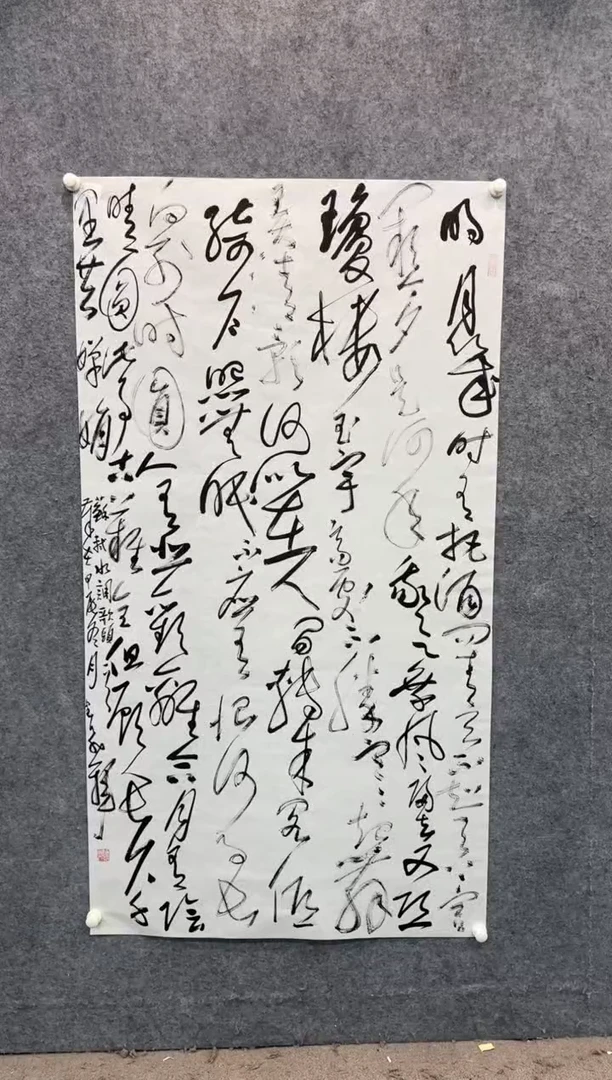 明月幾时有把酒问青天不知天上宫
阙今夕是何年我欲乘风归去又恐
瓊楼玉宇高处不胜寒起舞
弄清影何似在人间转朱阁低
绮户照无眠不应有恨何事长
向别时圓人有悲欢離合月有阴
晴圓此事古難全但願长久千
里共婵娟
蘇軾水調歌頭
歲在甲辰冬月